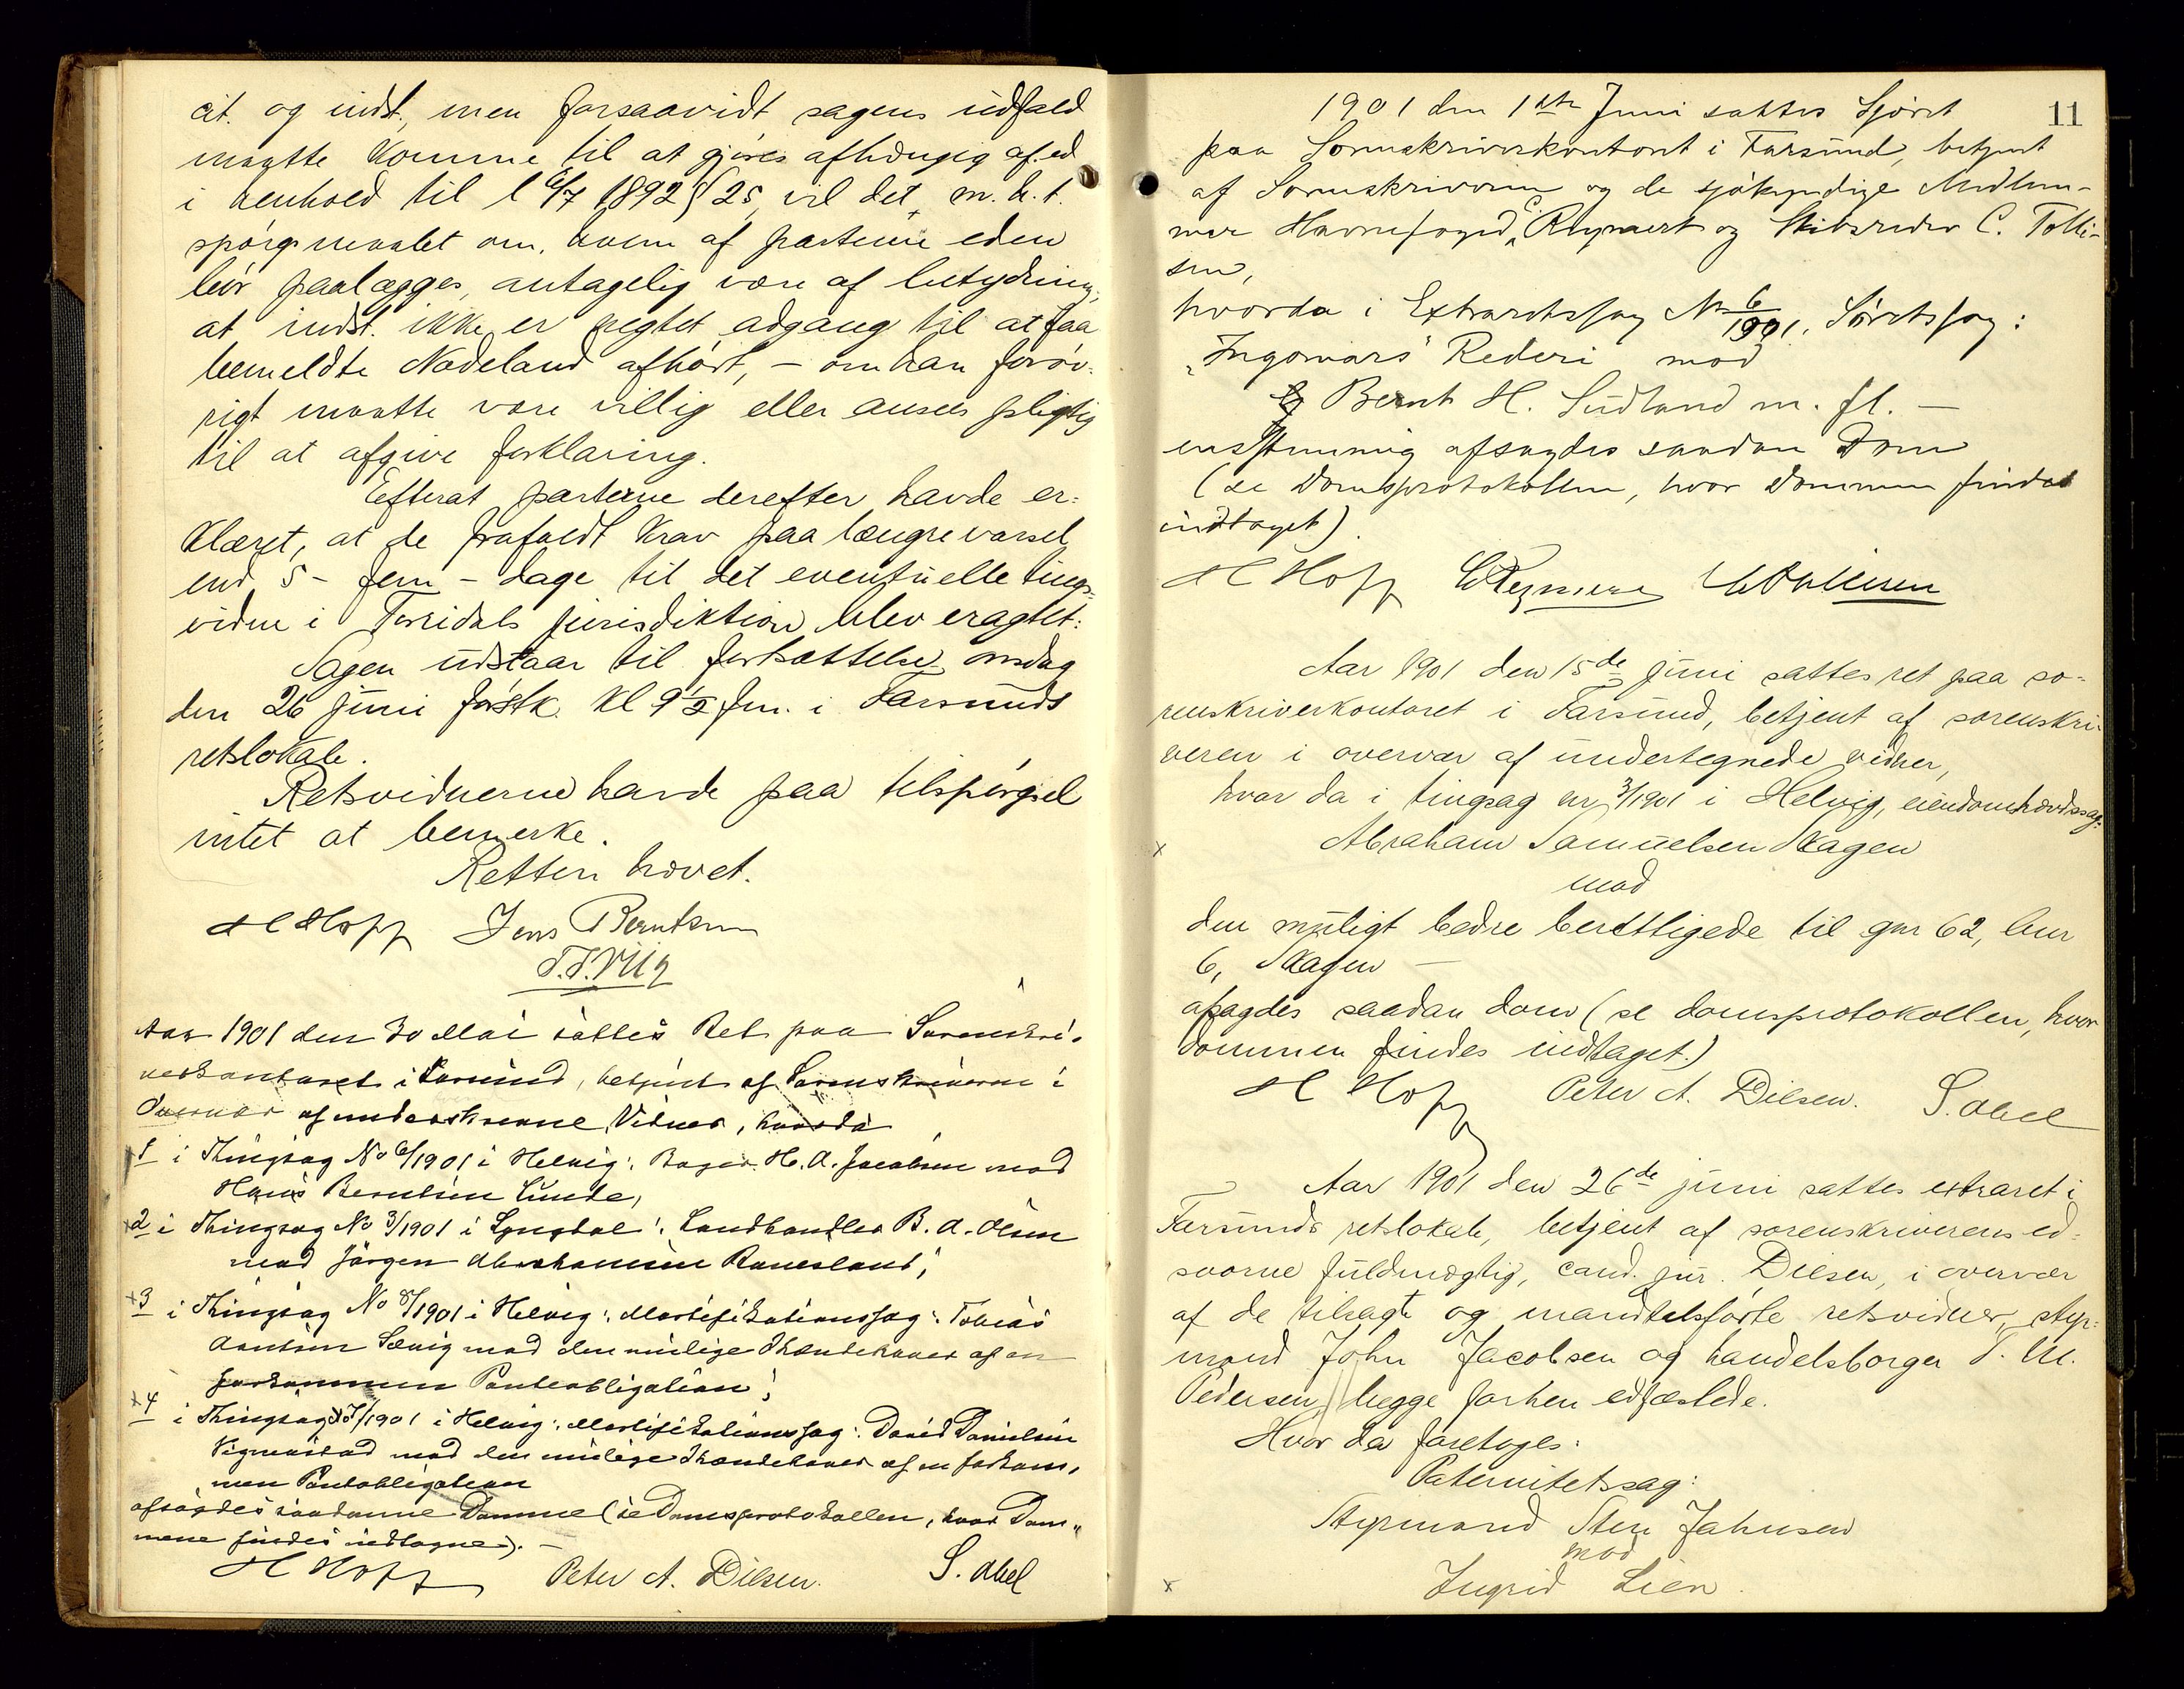 cit. og indst., men forsaavidt sagens udfald
maatte komme til at gjøres afhængig af ed
i henhold til l 6/7 1892 § 25, vil det, m. h. t.
spørgsmaalet om, hvem af parterne eden
bør paalægges, antagelig være af betydning,
at indst. ikke er negtet adgang til at faa
bemeldte Nodeland afhørt, – om han forøv-
rigt maatte være villig eller ansees pligtig
til at afgive forklaring.
Efterat parterne derefter havde er-
klæret, at de frafaldt krav paa længre varsel
end 5 – fem – dage til det eventuelle tings-
vidne i Torridals jurisdiktion blev eragtet:
Sagen udstaar til fortsættelse onsdag
den 26 juni førstk. kl 9½ fm. i Farsunds
retslokale.
Retsvidnerne havde paa tilspørgsel
intet at bemerke.
Retten hævet.
H Hoff Jens Berntsen
Aar 1901 den 30 Mai sattes Ret paa Sorenskri-
verkontoret i Farsund, betjent af Sorenskriveren i
Overvær af underskrevne Vidner, hvorda
1 i Thingsag No 6/1901 i Helvig: Bager H. A. Jacobsen mod
Hans Berntsen Lunde,
x2 i Thingsag No 3/1901 i Lyngdal: Landhandler B. A. Olsen
mod Jørgen Abrahamsen Rømesland;
x3 i Thingsag No 8/1901 i Helvig: Mortifikationssag: Tobias
Arntsen Sævig mod den mulige Ihændehaver af en
forkommen Panteobligation;
x4 i Thingsag No 7/1901 i Helvig: Mortifikationssag: David Danielsen
Vigmostad mod den mulige Ihændehaver af en forkom-
men Panteobligation
afsagdes saadanne Domme (se Domsprotokollen, hvor Dom-
mene findes indtagne). –
H Hoff Peter A. Dilsen. S. Abel
11
1901 den 1ste Juni sattes Sjøret
paa Sorenskriverkontoret i Farsund, betjent
af Sorenskriveren og de sjøkyndige Medlem-
mer Havnefoged C. Reymert og Skibsreder C. Tolli-
sen,
hvorda i Extraretssag No 6/1901, Søretssag:
"Ingomars" Rederi mod
Bernt H. Sudland m. fl. –
enstemmig afsagdes saadan Dom
(se Domsprotokollen, hvor Dommen findes
indtaget).
H Hoff C Reymert C Tollisen
Aar 1901 den 15de juni sattes ret paa so-
renskriverkontoret i Farsund, betjent af sorenskri-
veren i overvær af undertegnede vidner,
hvor da i tingsag nr 3/1901 i Helvig, eiendomshævdssag:
x Abraham Samuelsen Skagen
mod
den muligt bedre berettigede til gnr 62, bnr
6, Skagen –
afsagdes saadan dom (se domsprotokollen, hvor
dommen findes indtaget.)
H Hoff Peter A. Dilsen. S. Abel
Aar 1901 den 26de juni sattes extraret i
Farsunds retslokale, betjent af sorenskriverens ed-
svorne fuldmægtig, cand. jur. Dilsen, i overvær
af de tilsagt og mandtalsførte retsvidner, styr-
mand John Jacobsen og handelsborger T. M.
Pedersen, begge forhen edfæstede.
Hvor da foretoges:
Paternitetssag:
Styrmand Sten Jahnsen
mod
x Ingrid Lien.